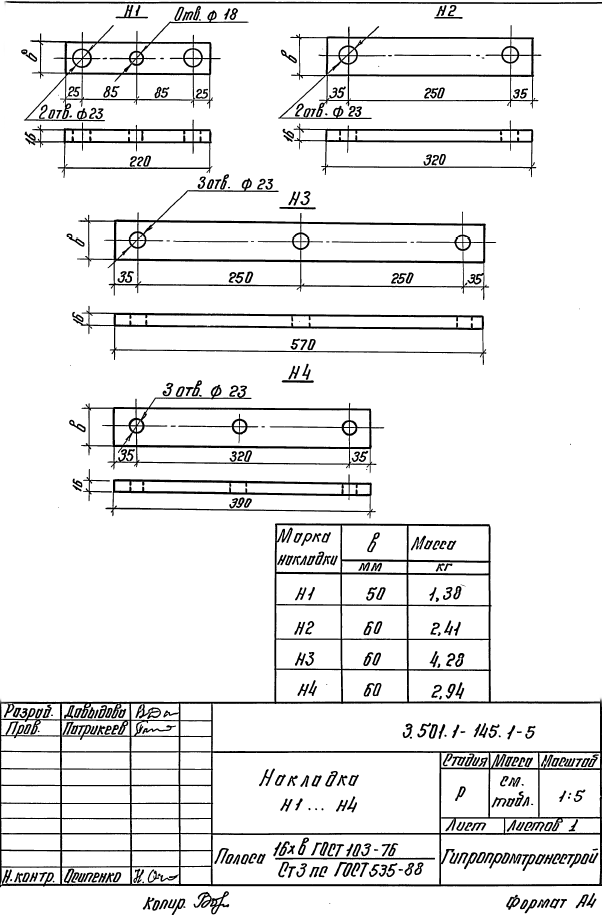 Н1
Отв. ф 18
Н2
в
в
25
85
85
25
35
250
35
2 отв. ф 23
2 отв. ф 23
16
16
220
320
3 отв. ф 23
Н3
в
35
250
250
35
16
570
Н4
3 отв. ф 23
в
35
320
35
16
390
Марка накладки
в
Масса
мм
кг
Н1 50 1,38
Н2 60 2,41
Н3 60 4,28
Н4 60 2,94
Разраб. Давыдова
Пров. Патрикеев
Н.контр. Осипенко
3.501.1-145.1-5
Накладка
Н1... Н4
Стадия Масса Масштаб
Р
см. табл.
1:5
Лист
Листов 1
Полоса
16хв ГОСТ 103-76
Ст3пс ГОСТ 535-88
Гипропромтрансстрой
Копир.
Формат А4